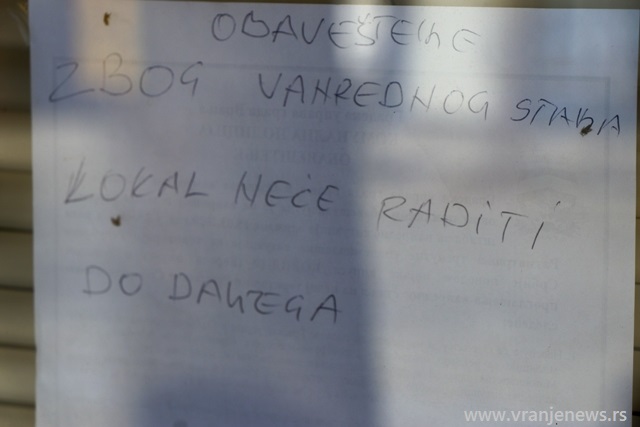 OBAVEŠTEЊE
ZBOG VANREDNOG STAЊA
LOKAL NEĆE RADITI
DO DAЉEGA
www.vranjenews.rs